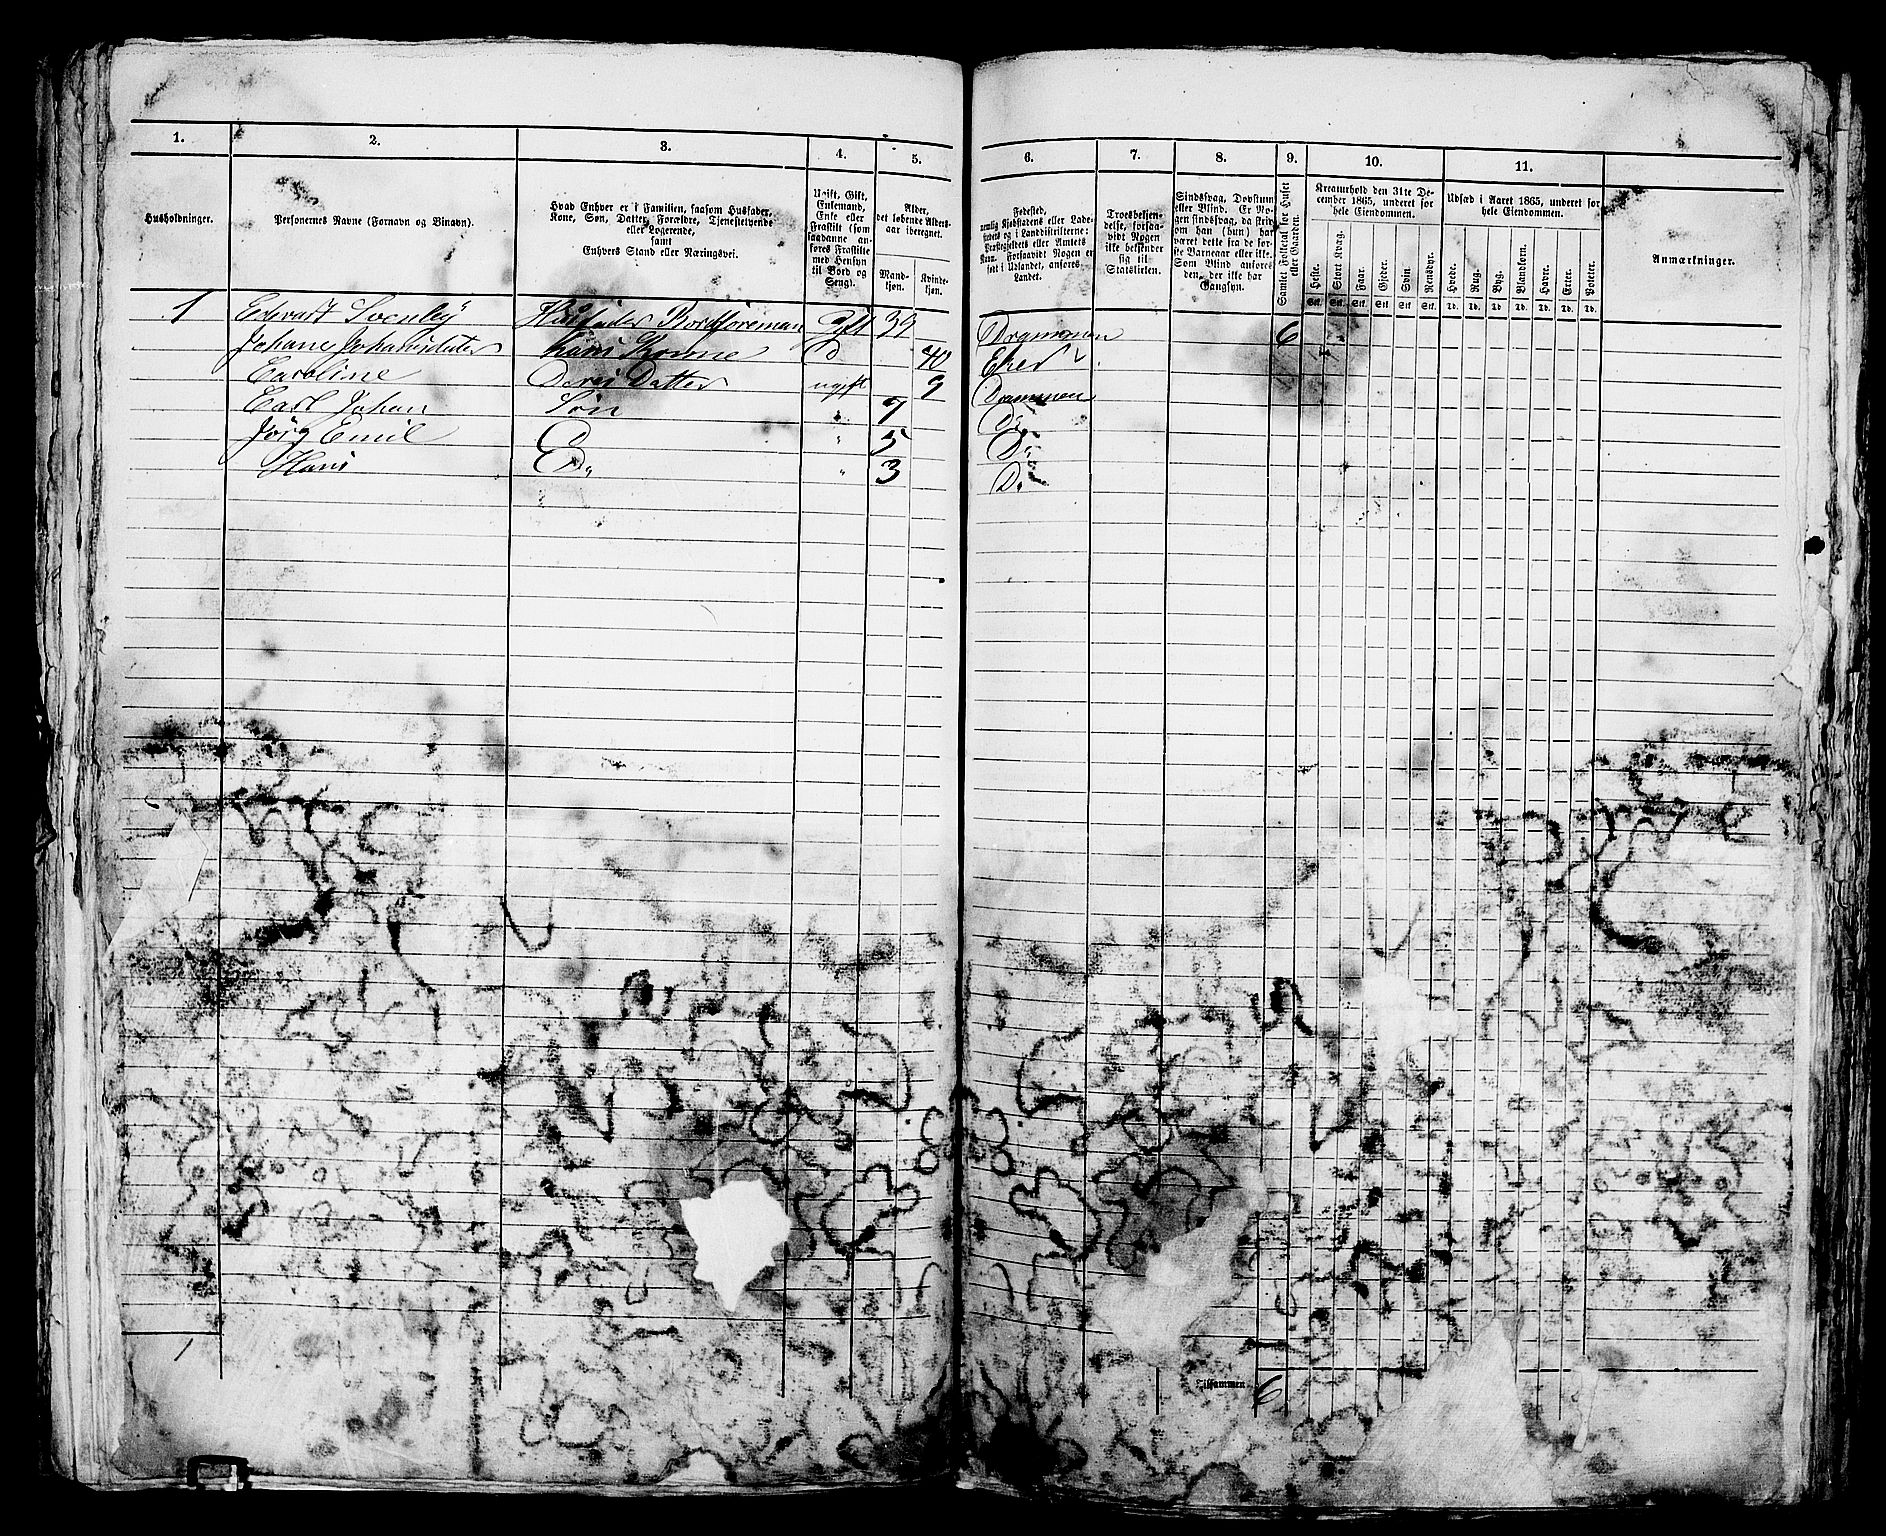 1. 2. 3. 4. 5. 6. 7. 8. 9. 10. 11.
Husholdninger.
Personernes Navne (Fornavn og Binavn).
Hvad Enhver er i Familien, saasom Husfader,
Kone, Søn, Datter, Forældre, Tjenestetyende
eller Logerende,
samt
Enhvers Stand eller Næringsvei.
Ugift, Gift,
Enkemand,
Enke eller
Fraskilt (som
saadanne an-
føres Fraskilte
med Hensyn
til Bord og
Seng).
Alder,
det løbende Alders-
aar iberegnet.
Mand-
kjøn.
Kvinde-
kjøn.
Fødested,
nemlig Kjøbstadens eller Lade-
stedets og i Landdistrikterne:
Præstegjeldets eller Amtets
Navn. Forsaavidt Nogen er
født i Udlandet, anføres
Landet.
Troesbekjen-
delse, forsaa-
vidt Nogen
ikke bekjender
sig til
Statskirken.
Sindssvag, Døvstum
eller Blind. Er No-
gen sindssvag, da skriv
om han (hun) har
været dette fra de før-
ste Barneaar eller ikke.
Som Blind anføres
den, der ikke har
Gangsyn.
Samlet Folketal for Huset
eller Gaarden.
Kreaturhold den 31te De-
cember 1865, underet for
hele Eiendommen.
Heste. Stort Kvæg. Faar. Gjeder. Svin. Rensdyr.
Stk. Stk. Stk. Stk. Stk. Stk.
Udsæd i Aaret 1865, underet for
hele Eiendommen.
Hvede. Rug. Byg. Blandkorn. Havre. Erter. Poteter.
Td. Td. Td. Td. Td. Td. Td.
Anmærkninger.
1 Edvart Husfader Gift 39 Drammen 6
Johane Johansdatter hans Konne D 40 Eker
Caroline Deres Datter ugift 9 Drammen
Carl Johan Søn " 7 Do
Jørg Emil D " 5 Do
Hans Do " 3 Do
1 Tilsammen 6